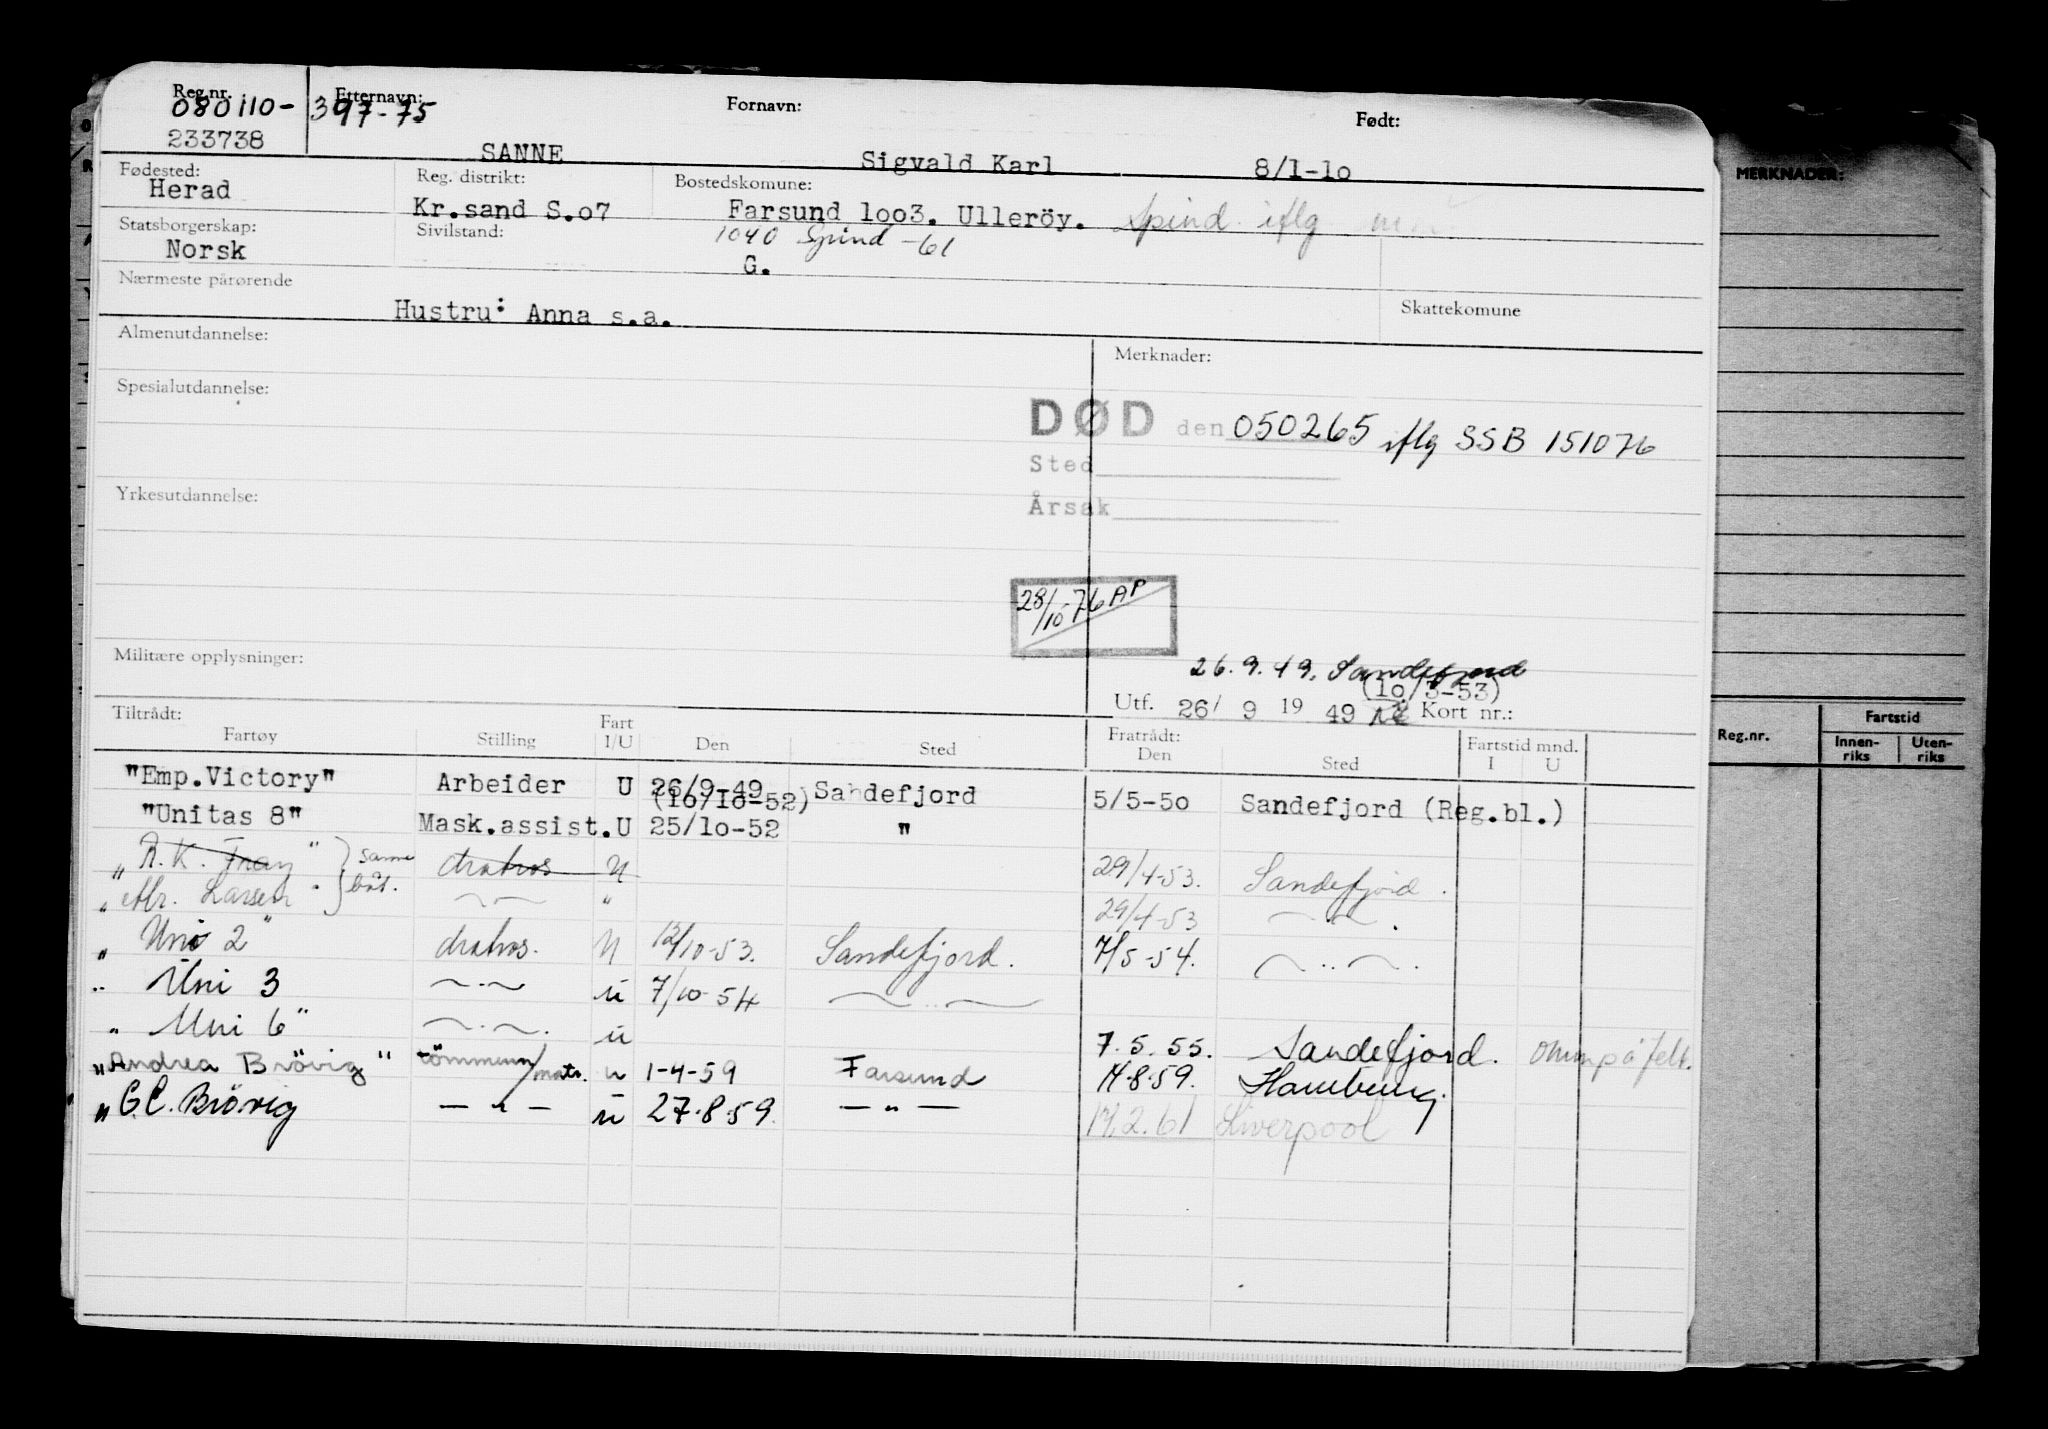 Reg.nr. Etternavn: Fornavn: Født:
080110- 397-75
233738 SANNE Sigvald Karl 8/1-1o
Fødested: Reg. distrikt: Bostedskomune:
Herad Kr.sand S.o7 Farsund 1oo3. Ulleröy. Spind iflg
Statsborgerskap: Sivilstand: 1040 Spind -61
Norsk G.
Nærmeste pårørende
Hustru: Anna s.a. Skattekomune
Almenutdannelse: Merknader:
Spesialutdannelse:
DØD den 050265 iflg SSB 151076
Sted
Yrkesutdannelse:
Årsak
28/10 76 AP
Militære opplysninger:
26.9.49. Sandefjord
(1o/3-53)
Utf. 26/ 9 19 49 Kort nr.:
Tiltrådt: Fratrådt:
Fartøy Stilling Fart I/U Den Sted Den Sted Fartstid mnd. I U
"Emp.Victory" Arbeider U 26/9-49 Sandefjord 5/5-5o Sandefjord (Reg.bl.)
(16/1o-52)
"Unitas 8" Mask.assist. U 25/1o-52 "
" N. K. Fray " } samme båt. matros U 29/4-53. Sandefjord.
" Abr. Larsen " — " 29/4-53 — " —.
" Uni 2 " matros. U 12/10-53. Sandefjord. 7/5-54. — " —.
" Uni 3 — " — u 7/10-54 — " —
" Uni 6 " — " —. u 7.5.55. Sandefjord. omm på felt.
"Andrea Brövig" tömmerm/matr. u 1-4-59 Farsund 14.8.59. Hamburg.
" G.C. Brövig — " — u 27.8.59. — " — 14.2.61 Liverpool
MERKNADER:
Reg.nr. Fartstid
Innenriks Utenriks